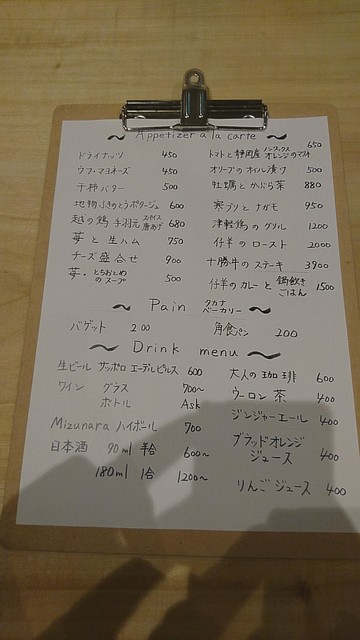 ~ Appetizer a la carte ~
ドライナッツ 450
ウフ・マヨネーズ 450
干柿バター 500
地物ふきのとうポタージュ 600
越の鶏 手羽元 スパイス唐あげ 680
苺と生ハム 750
チーズ盛合せ 900
苺・とちおとめのスープ 500
トマトと静岡産ノンワックスオレンジのマリネ 650
オリーブのオイル漬け 500
牡蠣とかぶら茶 880
寒ブリとナガモ 950
津軽鶏のグリル 1200
仔羊のロースト 2000
十勝牛のステーキ 3900
仔羊のカレーと鍋炊きごはん 1500
~ Pain タカナベーカリー ~
バゲット 200
角食パン 200
~ Drink menu ~
生ビール サッポロ エーデルピルス 600
ワイン グラス 700~
ボトル Ask
Mizunara ハイボール 700
日本酒 90ml 半合 600~
180ml 1合 1200~
大人の珈琲 600
ウーロン茶 400
ジンジャーエール 400
ブラッドオレンジ
ジュース 400
りんごジュース 400